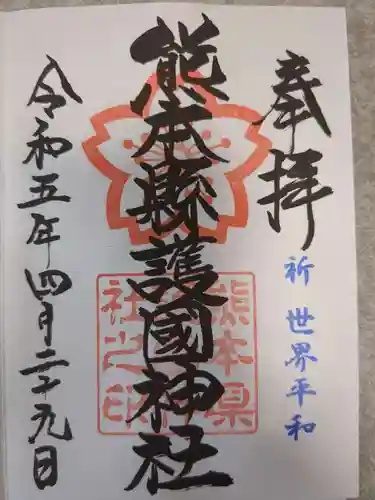 奉拝
祈 世界平和
熊本縣護國神社
熊本県
社之印
令和五年四月二十九日